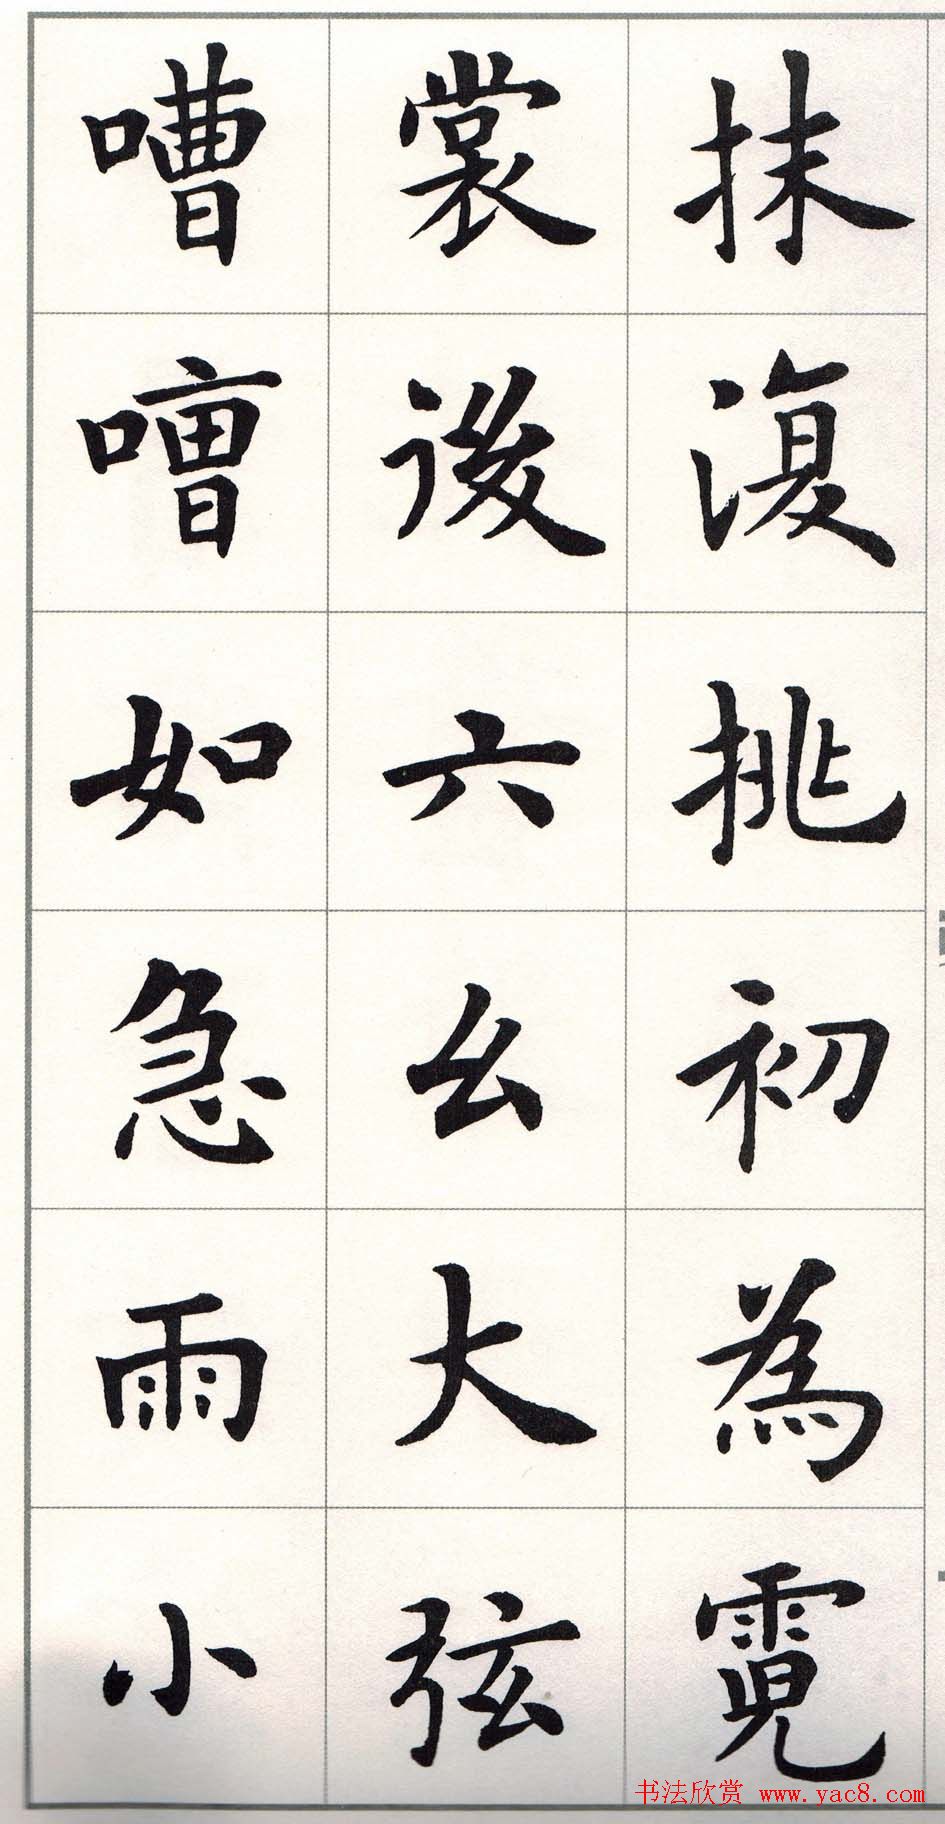 抹復挑初為霓
裳後六幺大弦
嘈嘈如急雨小
书法欣赏 www.yac8.com